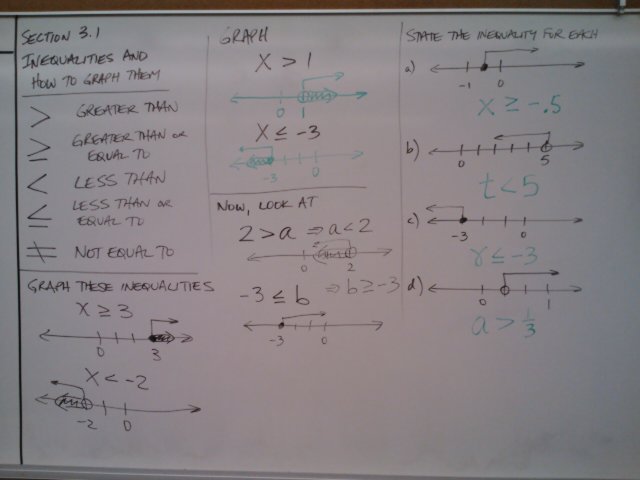 SECTION 3.1
INEQUALITIES AND
HOW TO GRAPH THEM
> GREATER THAN
≥ GREATER THAN OR
EQUAL TO
< LESS THAN
≤ LESS THAN OR
EQUAL TO
≠ NOT EQUAL TO
GRAPH THESE INEQUALITIES
X ≥ 3
0 3
X < -2
-2 0
GRAPH
X > 1
0 1
X ≤ -3
-3 0
NOW, LOOK AT
2 > a ⇒ a < 2
0 2
-3 ≤ b ⇒ b ≥ -3
-3 0
STATE THE INEQUALITY FOR EACH
a)
-1 0
X ≥ -.5
b)
0 5
t < 5
c)
-3 0
r ≤ -3
d)
0 1
a > 1/3